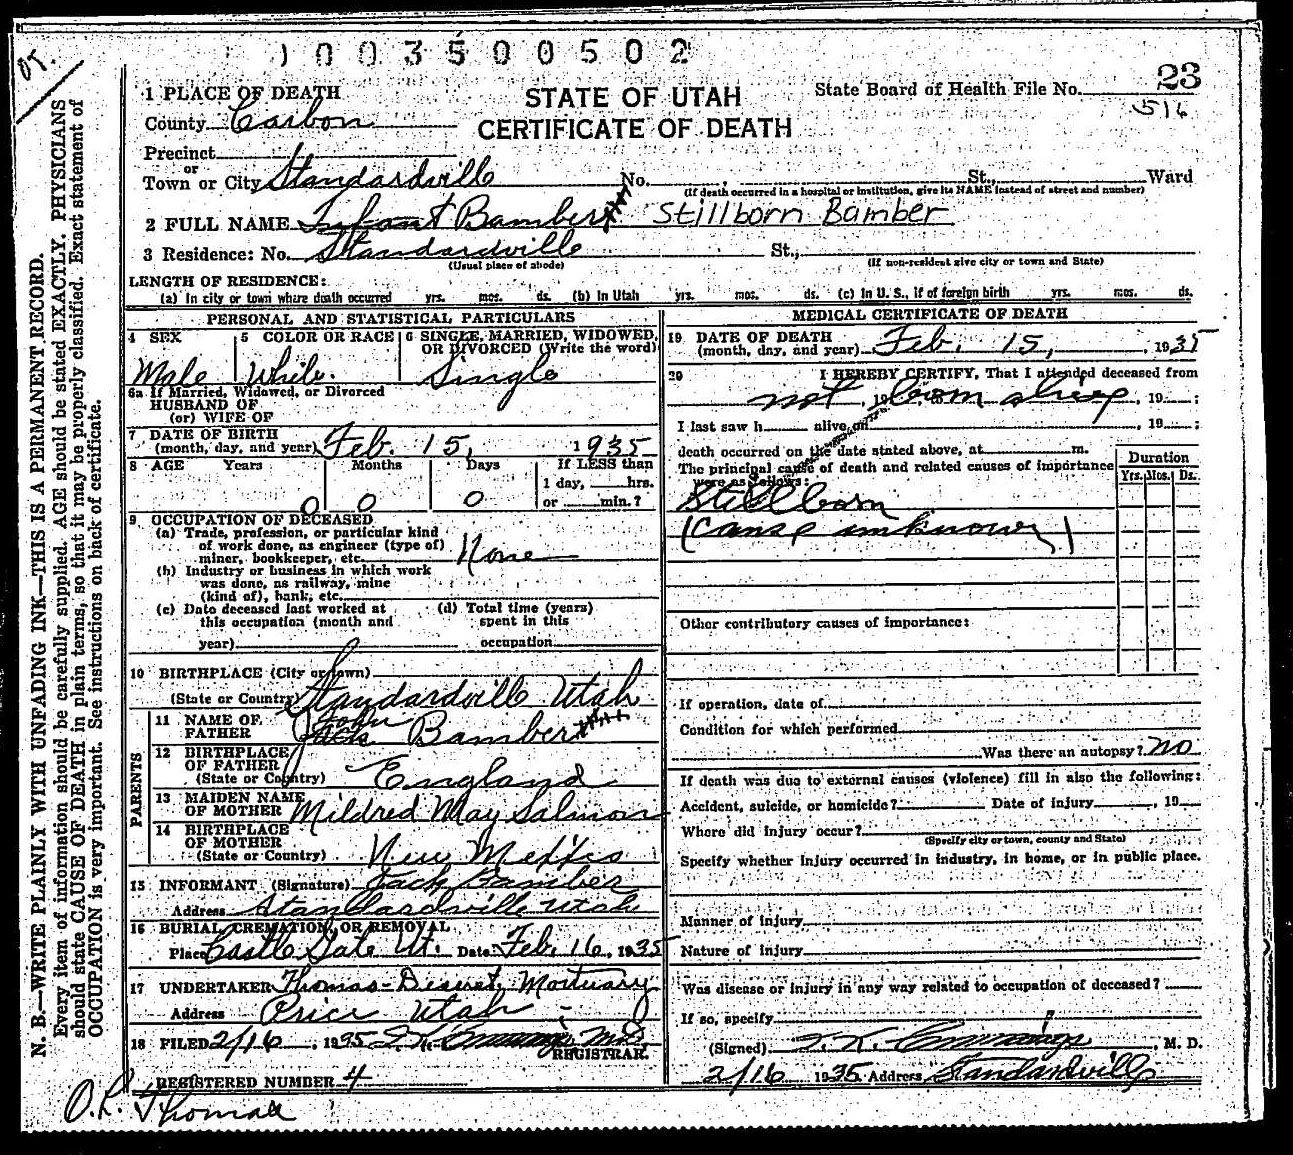 1003500502
OT.
23
1 PLACE OF DEATH
STATE OF UTAH
State Board of Health File No.
516
County Carbon
CERTIFICATE OF DEATH
Precinct
or
Town or City Standardville No. St., Ward
(If death occurred in a hospital or institution, give its NAME instead of street and number)
2 FULL NAME Infant Bamber Stillborn Bamber
3 Residence: No. Standardville St.,
(Usual place of abode) (If non-resident give city or town and State)
LENGTH OF RESIDENCE:
(a) In city or town where death occurred yrs. mos. ds. (b) In Utah yrs. mos. ds. (c) In U. S., if of foreign birth yrs. mos. ds.
PERSONAL AND STATISTICAL PARTICULARS
4 SEX 5 COLOR OR RACE 6 SINGLE, MARRIED, WIDOWED,
OR DIVORCED (Write the word)
Male White. Single
6a If Married, Widowed, or Divorced
HUSBAND OF
(or) WIFE OF
7 DATE OF BIRTH
(month, day, and year) Feb. 15, 1935
8 AGE Years Months Days If LESS than
1 day, hrs.
0 0 0 or min.?
9 OCCUPATION OF DECEASED
(a) Trade, profession, or particular kind
of work done, as engineer (type of)
miner, bookkeeper, etc. None
(b) Industry or business in which work
was done, as railway, mine
(kind of), bank, etc.
(c) Date deceased last worked at (d) Total time (years)
this occupation (month and spent in this
year) occupation
10 BIRTHPLACE (City or town)
(State or Country) Standardville Utah
PARENTS
11 NAME OF John
FATHER Jack Bamber
12 BIRTHPLACE
OF FATHER
(State or Country) England
13 MAIDEN NAME
OF MOTHER Mildred May Salmon
14 BIRTHPLACE
OF MOTHER
(State or Country) New Mexico
15 INFORMANT (Signature) Jack Bamber
Address Standardville Utah
16 BURIAL, CREMATION, OR REMOVAL
Place Castle Gate Ut. Date Feb. 16, 1935
17 UNDERTAKER Thomas-Deseret Mortuary
Address Price Utah
18 FILED 2/16, 1935
REGISTRAR.
REGISTERED NUMBER 4
Thomas
MEDICAL CERTIFICATE OF DEATH
19 DATE OF DEATH
(month, day, and year) Feb. 15, 1935
20 I HEREBY CERTIFY, That I attended deceased from
not , 19 born alive , 19 ;
I last saw h alive on , 19 ;
death occurred on the date stated above, at m.
The principal cause of death and related causes of importance
were as follows:
Duration
Yrs. Mos. Ds.
Stillborn
(Cause unknown)
Other contributory causes of importance:
If operation, date of
Condition for which performed
Was there an autopsy? no
If death was due to external causes (violence) fill in also the following:
Accident, suicide, or homicide? Date of injury , 19
Where did injury occur?
(Specify city or town, county and State)
Specify whether injury occurred in industry, in home, or in public place.
Manner of injury
Nature of injury
Was disease or injury in any way related to occupation of deceased?
If so, specify
(Signed) , M. D.
2/16 1935 Address Standardville
N. B.—WRITE PLAINLY WITH UNFADING INK—THIS IS A PERMANENT RECORD.
Every item of information should be carefully supplied. AGE should be stated EXACTLY. PHYSICIANS
should state CAUSE OF DEATH in plain terms, so that it may be properly classified. Exact statement of
OCCUPATION is very important. See instructions on back of certificate.